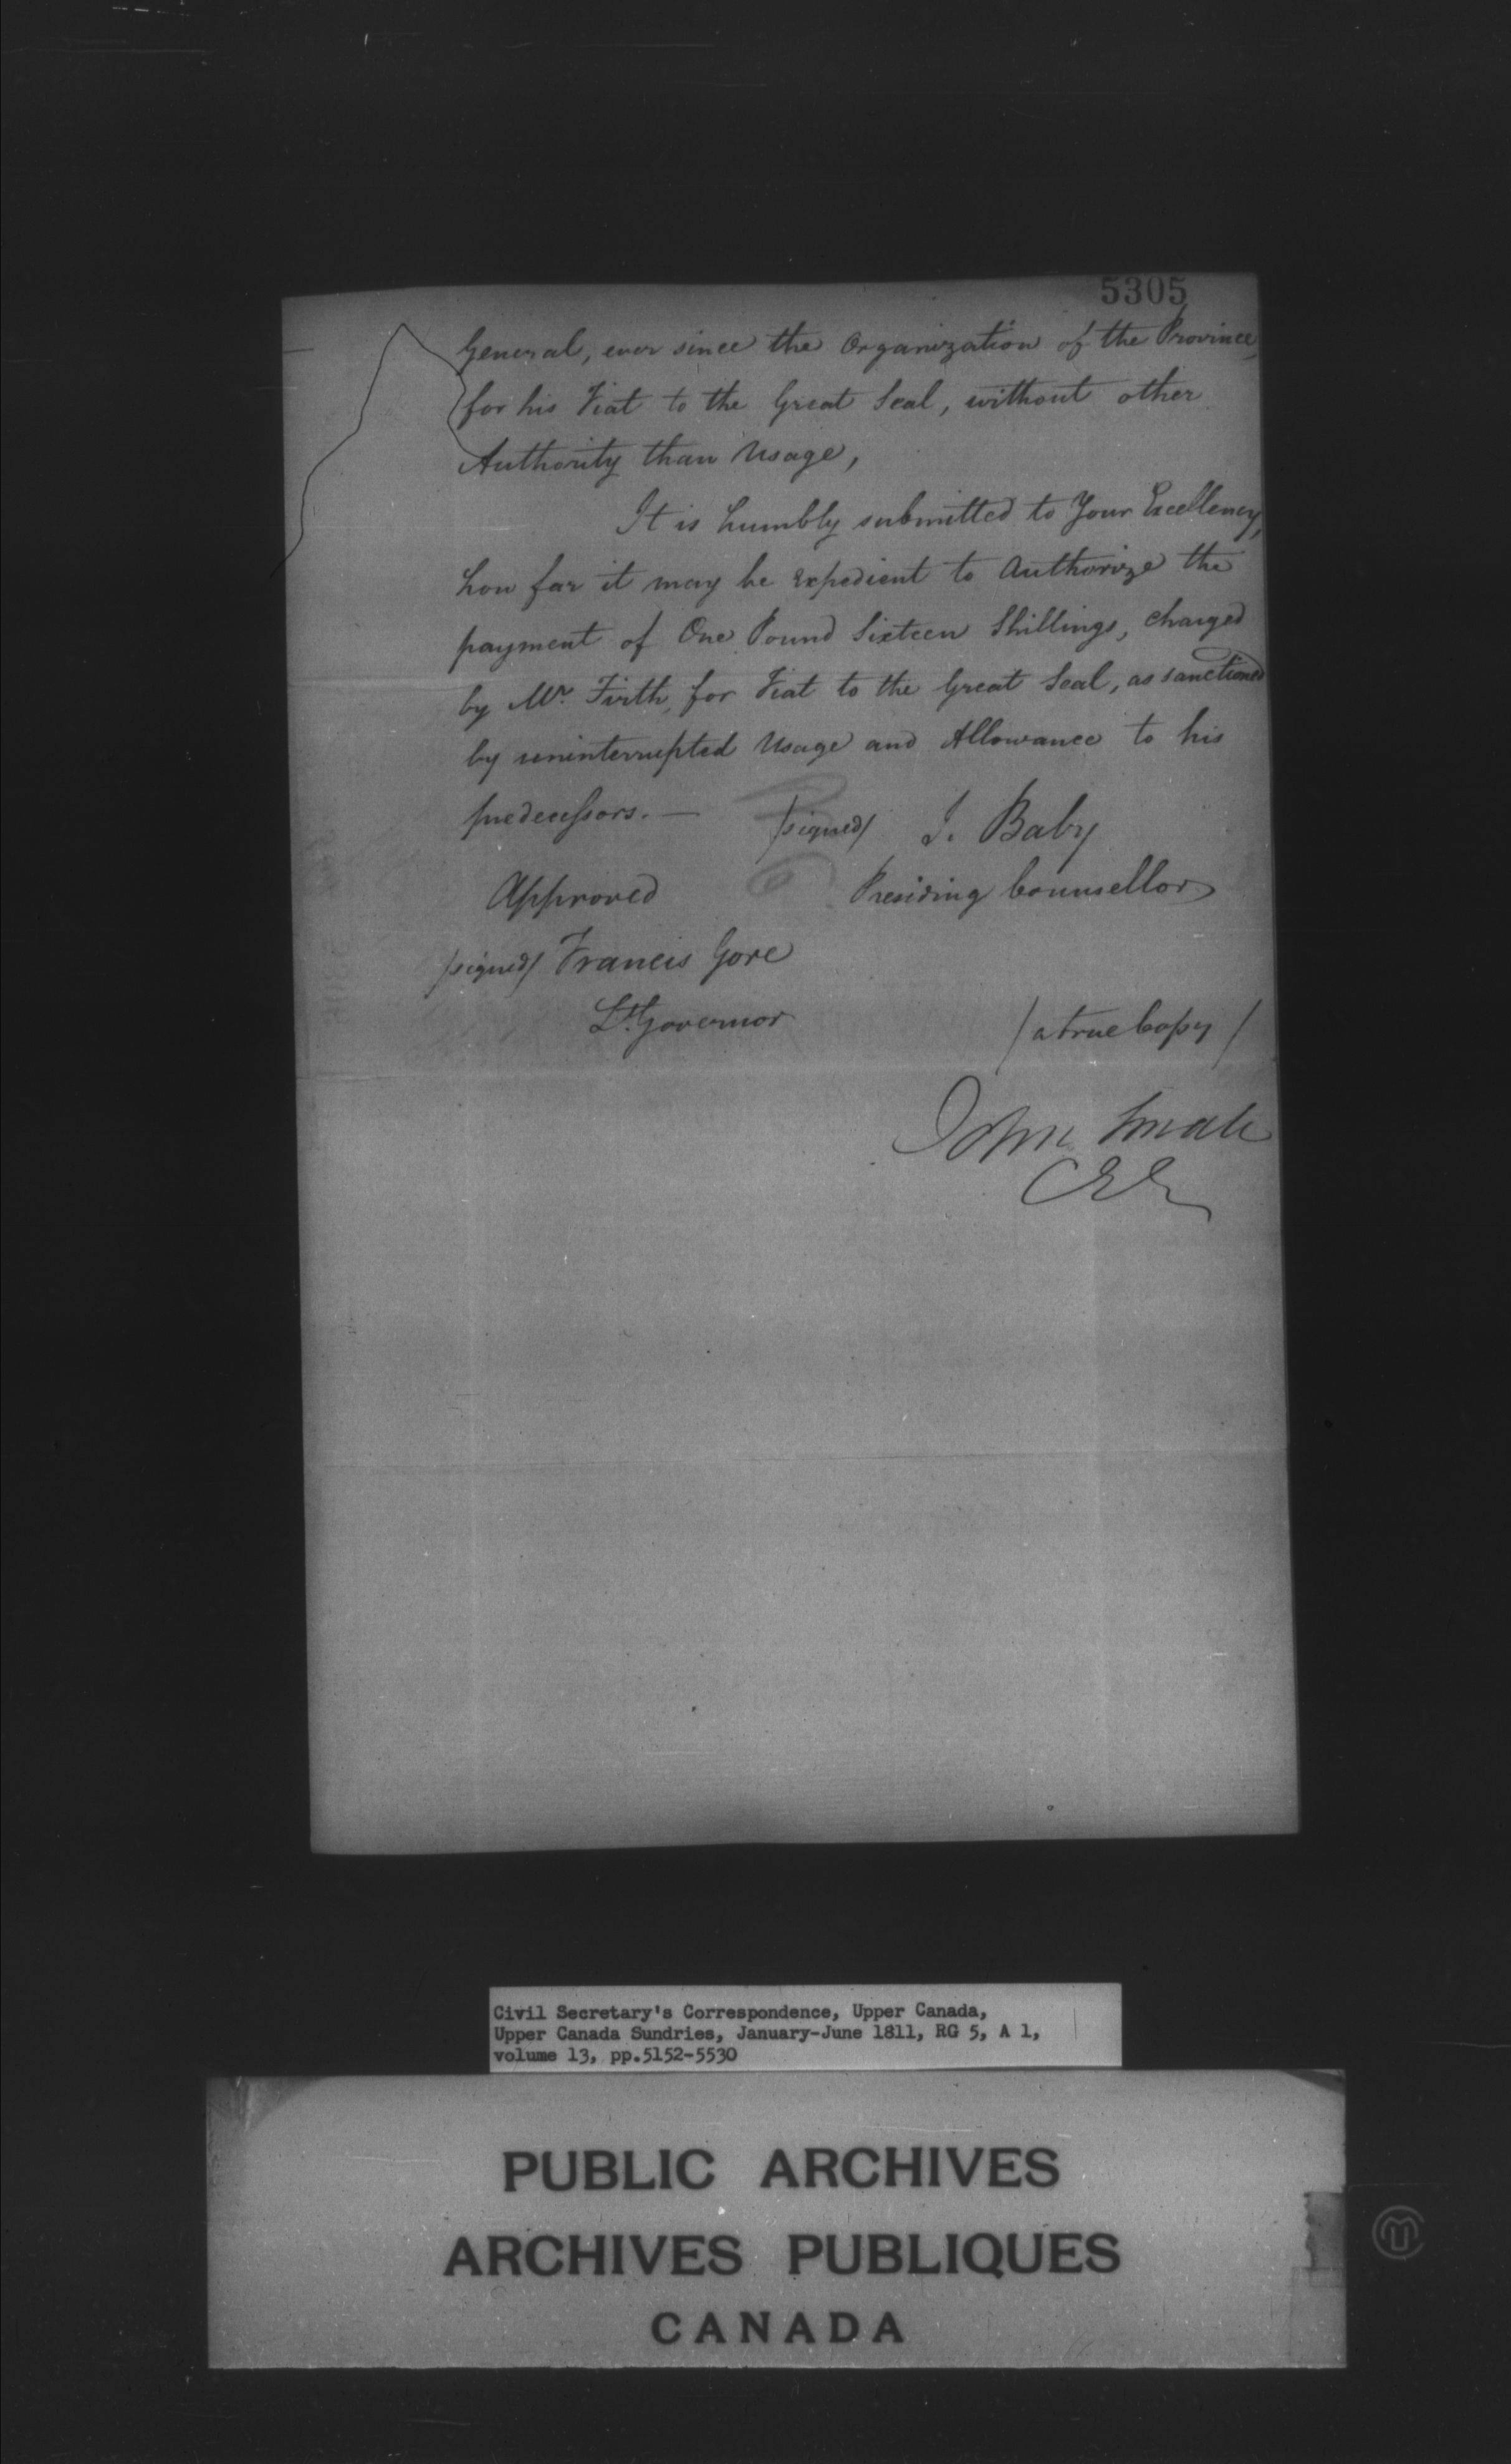 5305
General, ever since the Organization of the Province,
for his Fiat to the Great Seal, without other
Authority than Usage,
It is humbly submitted to Your Excellency,
how far it may be expedient to Authorize the
payment of One Pound Sixteen Shillings, charged
by Mr. Firth, for Fiat to the Great Seal, as sanctioned
by uninterrupted Usage and Allowance to his
predecessors. —
/signed/ J. Baby
Approved
Presiding Counsellor
/signed/ Francis Gore
Lt. Governor
/ a true Copy /
John Small
CEC
Civil Secretary's Correspondence, Upper Canada,
Upper Canada Sundries, January-June 1811, RG 5, A 1,
volume 13, pp.5152-5530
PUBLIC ARCHIVES
ARCHIVES PUBLIQUES
CANADA